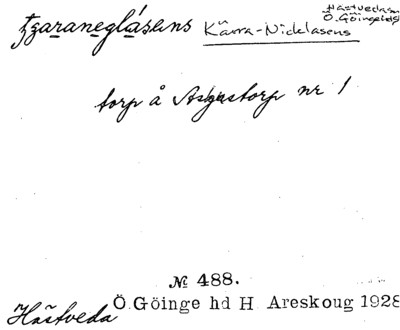 Hästveda sn
Ö. Göinge hd
tzaraneglásens Kärra-Nicklasens
torp å torp nr 1
№ 488.
Hästveda Ö. Göinge hd H Areskoug 1928